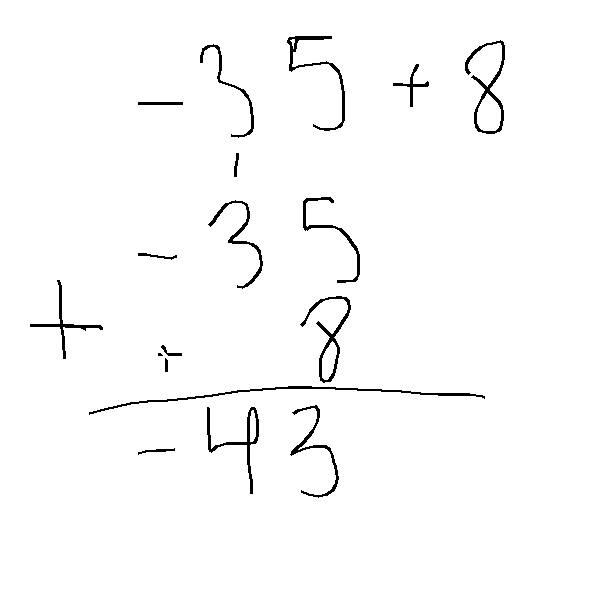 -35+8
1
-35
+ + 8
-43